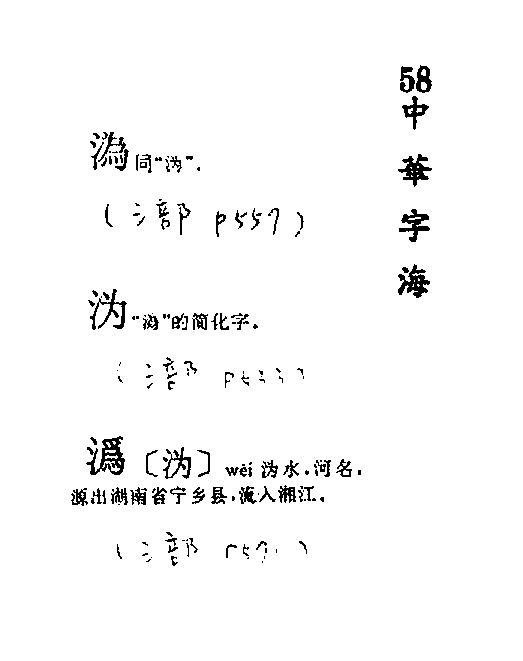 58
中華字海
溈同“沩”.
(氵部 p557)
沩“溈”的简化字.
(氵部 p533)
潙〔沩〕wéi 沩水.河名,
源出湖南省宁乡县,流入湘江.
(氵部